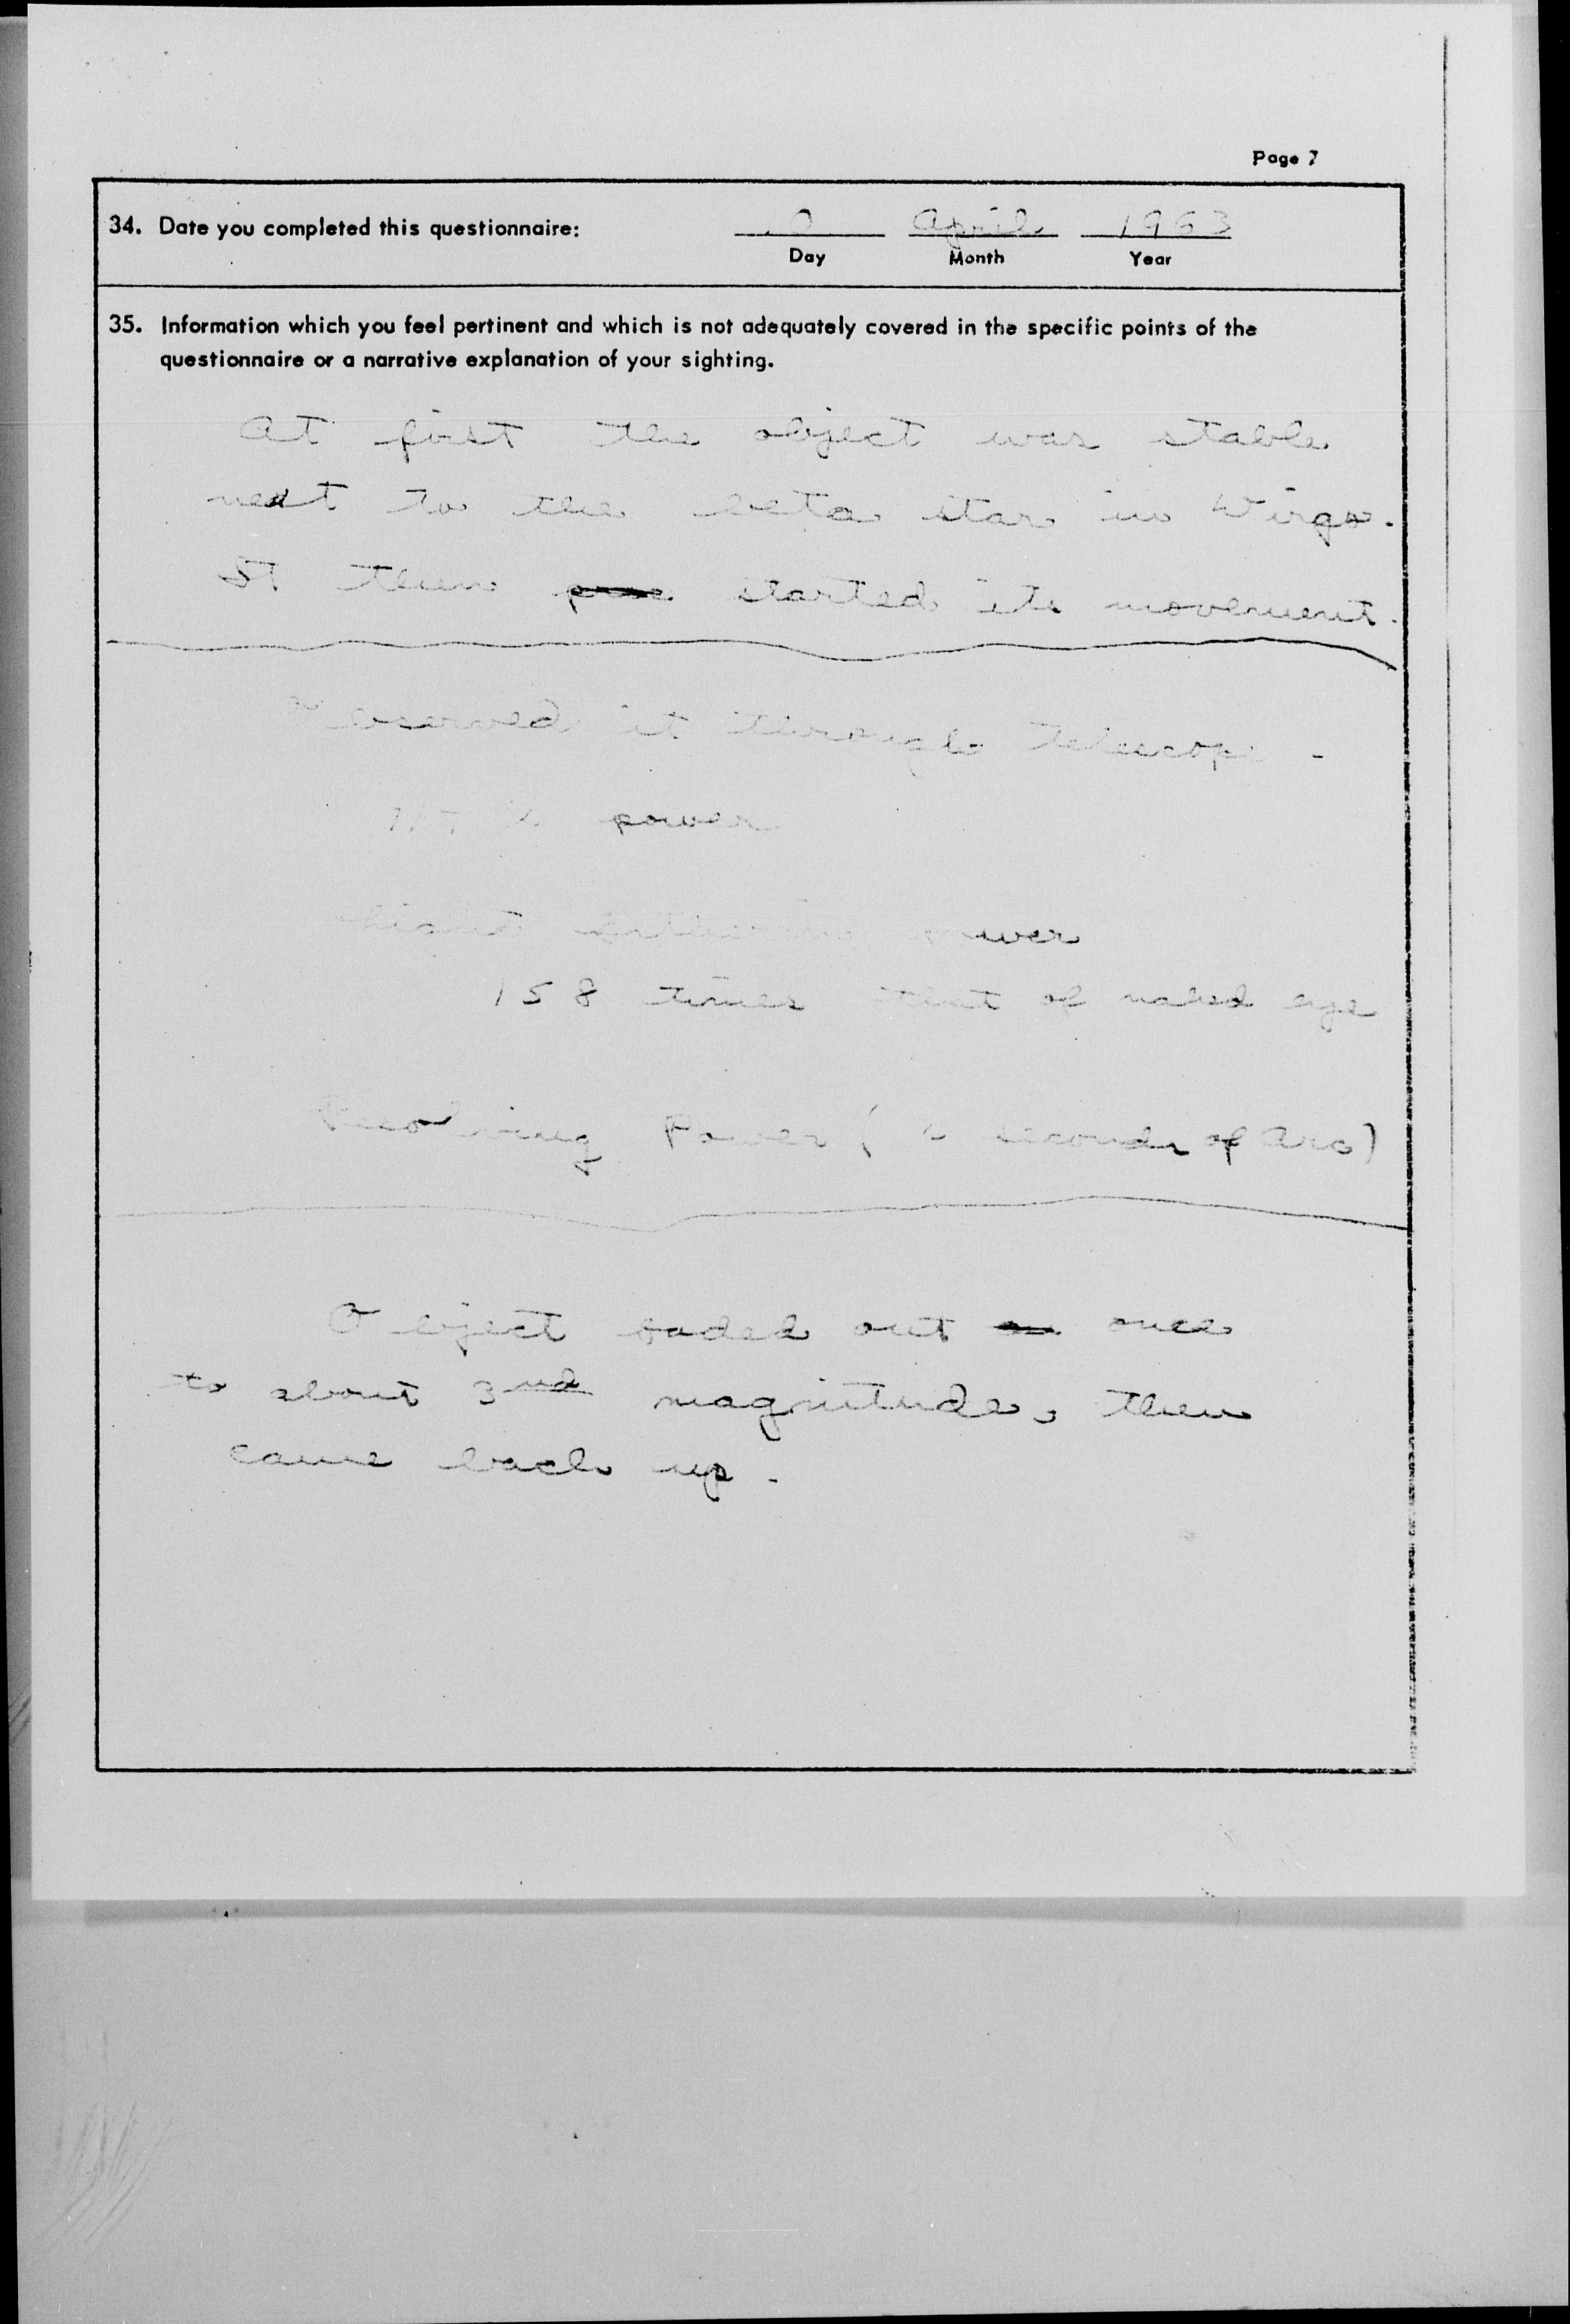 Page 7
34. Date you completed this questionnaire: 10 April 1963
Day Month Year
35. Information which you feel pertinent and which is not adequately covered in the specific points of the
questionnaire or a narrative explanation of your sighting.
At first the object was stable
next to the beta star in Virgo.
It then started its movement.
observed it through telescope -
power
light gathering power
158 times that of naked eye
Resolving Power ( seconds of Arc)
Object faded out once
to about 3nd magnitude, then
came back up.